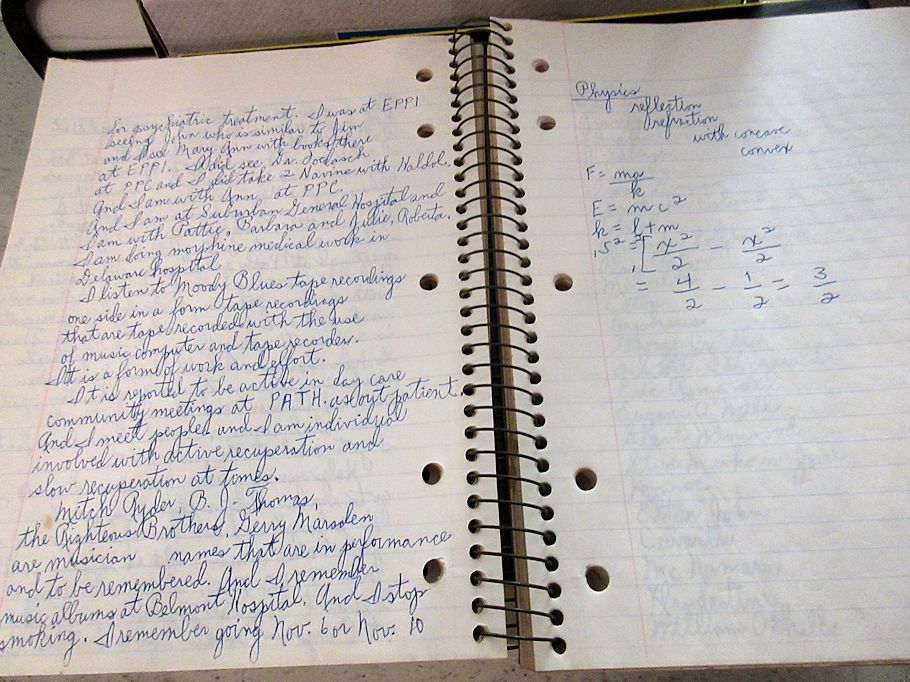 for psychiatric treatment. I was at EPPI
seeing John who is similar to Jim
and I saw Mary Ann with books there
at EPPI. I did see Dr.
at PPC and I did take 2 Navine with Haldol.
And I am with Ann at PPC.
And I am at Suburban General Hospital and
I am with Pattie, Barbara and Julie, Roberta.
I am doing morphine medical work in
Delaware Hospital
I listen to Moody Blues tape recordings
one side in a form tape recordings
that are tape recorded with the use
of music computer and tape recorder.
It is a form of work and effort.
It is reported to be active in day care
community meetings at PATH. as out patient.
And I meet people and I am individual
involved with active recuperation and
slow recuperation at times.
Mitch Ryder, B. J. Thomas,
the Righteous Brothers, Gerry Marsden
are musician names that are in performance
and to be remembered. And I remember
music albums at Belmont Hospital. And I stop
smoking. I remember going Nov. 6 or Nov. 10
Physics
reflection
refraction
with concave
convex
F = ma/k
E = mc²
k = f + m
x²/2 - x²/2
= 4/2 - 1/2 = 3/2